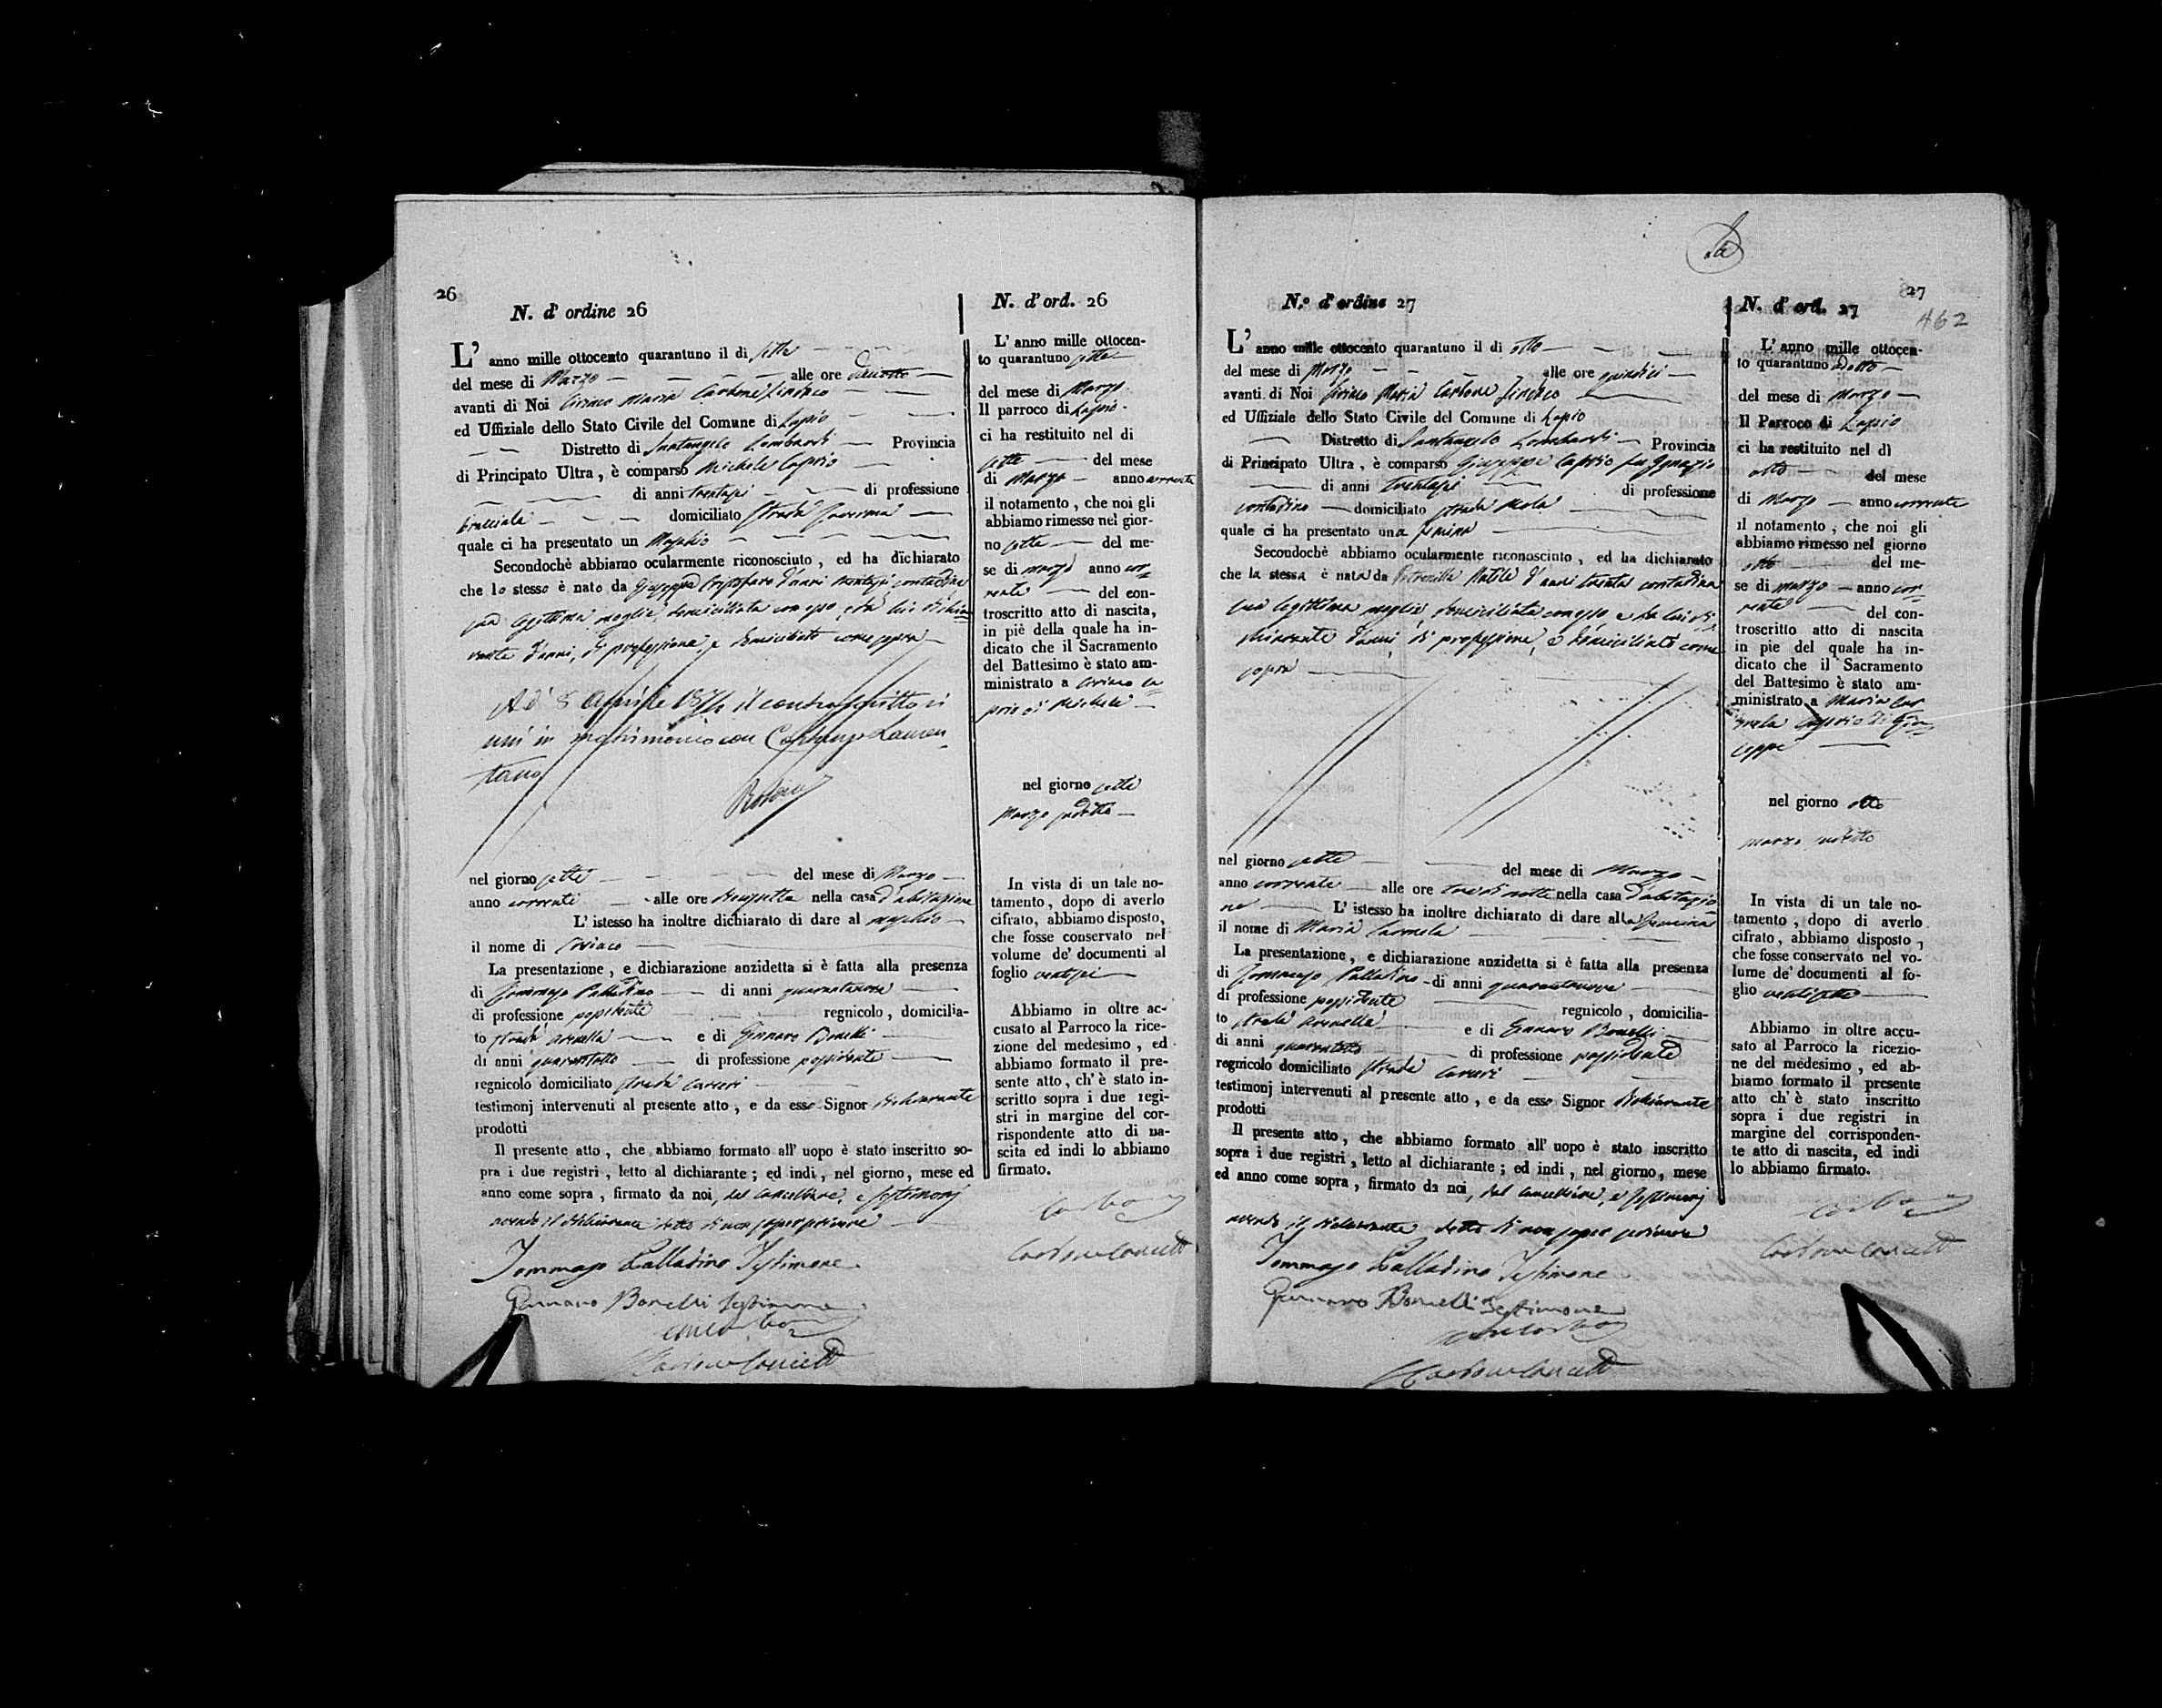 26
N. d' ordine 26
L' anno mille ottocento quarantuno il di sette
del mese di Marzo alle ore diciotto
avanti di Noi Ciriaco Maria Carbone Sindaco
ed Uffiziale dello Stato Civile del Comune di Lapio
Distretto di Santangelo Lombardi Provincia
di Principato Ultra, è comparso Michele Caprio
di anni trentasei di professione
bracciale domiciliato strada
quale ci ha presentato un Maschio
Secondochè abbiamo ocularmente riconosciuto, ed ha dichiarato
che lo stesso è nato da Giuseppa d'anni trentasei contadina
sua legittima moglie domiciliata con esso, e da lui dichia=
rante d'anni, di professione, e domiciliato come sopra
Ad 8 Aprile il controscritto si
unì in matrimonio con Lauren
tano
nel giorno sette del mese di Marzo
anno corrente alle ore diciassette nella casa d'abitazione
L' istesso ha inoltre dichiarato di dare al maschio
il nome di Ciriaco
La presentazione, e dichiarazione anzidetta si è fatta alla presenza
di Tommaso Palladino di anni quarantanove
di professione possidente regnicolo, domicilia-
to strada Arenella e di Gennaro Bonelli
di anni quarantotto di professione possidente
regnicolo domiciliato strada Carceri
testimonj intervenuti al presente atto, e da esso Signor dichiarante
prodotti
Il presente atto, che abbiamo formato all' uopo è stato inscritto so-
pra i due registri, letto al dichiarante; ed indi, nel giorno, mese ed
anno come sopra, firmato da noi, del cancelliere, e testimonj
avendo il dichiarante detto di non saper scrivere
Tommaso Palladino Testimone
Gennaro Bonelli Testimone
N. d' ord. 26
L' anno mille ottocen-
to quarantuno sette
del mese di Marzo
Il parroco di Lapio
ci ha restituito nel di
sette del mese
di Marzo anno corrente
il notamento, che noi gli
abbiamo rimesso nel gior-
no sette del me-
se di marzo anno cor-
rente del con-
troscritto atto di nascita,
in piè della quale ha in-
dicato che il Sacramento
del Battesimo è stato am-
ministrato a Ciriaco Ca
prio di Michele
nel giorno sette
Marzo sudetto
In vista di un tale no-
tamento, dopo di averlo
cifrato, abbiamo disposto,
che fosse conservato nel
volume de' documenti al
foglio ventisei
Abbiamo in oltre ac-
cusato al Parroco la rice-
zione del medesimo, ed
abbiamo formato il pre-
sente atto, ch' è stato in-
scritto sopra i due regi-
stri in margine del cor-
rispondente atto di na-
scita ed indi lo abbiamo
firmato.
27
462
N.º d' ordine 27
L' anno mille ottocento quarantuno il di otto
del mese di Marzo alle ore quindici
avanti di Noi Ciriaco Maria Carbone Sindaco
ed Uffiziale dello Stato Civile del Comune di Lapio
Distretto di Santangelo Lombardi Provincia
di Principato Ultra, è comparso Giuseppe Caprio fu Ignazio
di anni trentasei di professione
contadino domiciliato strada Mola
quale ci ha presentato una femina
Secondochè abbiamo ocularmente riconosciuto, ed ha dichiarato
che la stessa è nata da Petronilla Natale d'anni trenta contadina
sua legittima moglie, domiciliata con esso e da lui di=
chiarante d'anni, di professione, e domiciliato come
sopra
nel giorno sette del mese di Marzo
anno corrente alle ore tre di notte nella casa d'abitazio
ne L' istesso ha inoltre dichiarato di dare alla femina
il nome di Maria Carmela
La presentazione, e dichiarazione anzidetta si è fatta alla presenza
di Tommaso Palladino di anni quarantanove
di professione possidente regnicolo, domicilia-
to strada Arenella e di Gennaro Bonelli
di anni quarantotto di professione possidente
regnicolo domiciliato strada Carceri
testimonj intervenuti al presente atto, e da esso Signor dichiarante
prodotti
Il presente atto, che abbiamo formato all' uopo è stato inscritto
sopra i due registri, letto al dichiarante; ed indi, nel giorno, mese
ed anno come sopra, firmato da noi, del cancelliere, e testimonj
avendo il dichiarante detto di non saper scrivere
Tommaso Palladino Testimone
Gennaro Bonelli Testimone
N. d' ord. 27
L' anno mille ottocen-
to quarantuno otto
del mese di Marzo
Il Parroco di Lapio
ci ha restituito nel dì
otto del mese
di Marzo anno corrente
il notamento, che noi gli
abbiamo rimesso nel giorno
otto del me-
se di marzo anno cor-
rente del con-
troscritto atto di nascita
in pie del quale ha in-
dicato che il Sacramento
del Battesimo è stato am-
ministrato a Maria Car
mela Caprio di Giu=
seppe
nel giorno otto
marzo sudetto
In vista di un tale no-
tamento, dopo di averlo
cifrato, abbiamo disposto,
che fosse conservato nel vo-
lume de' documenti al fo-
glio ventisette
Abbiamo in oltre accu-
sato al Parroco la ricezio-
ne del medesimo, ed ab-
biamo formato il presente
atto ch' è stato inscritto
sopra i due registri in
margine del corrisponden-
te atto di nascita, ed indi
lo abbiamo firmato.